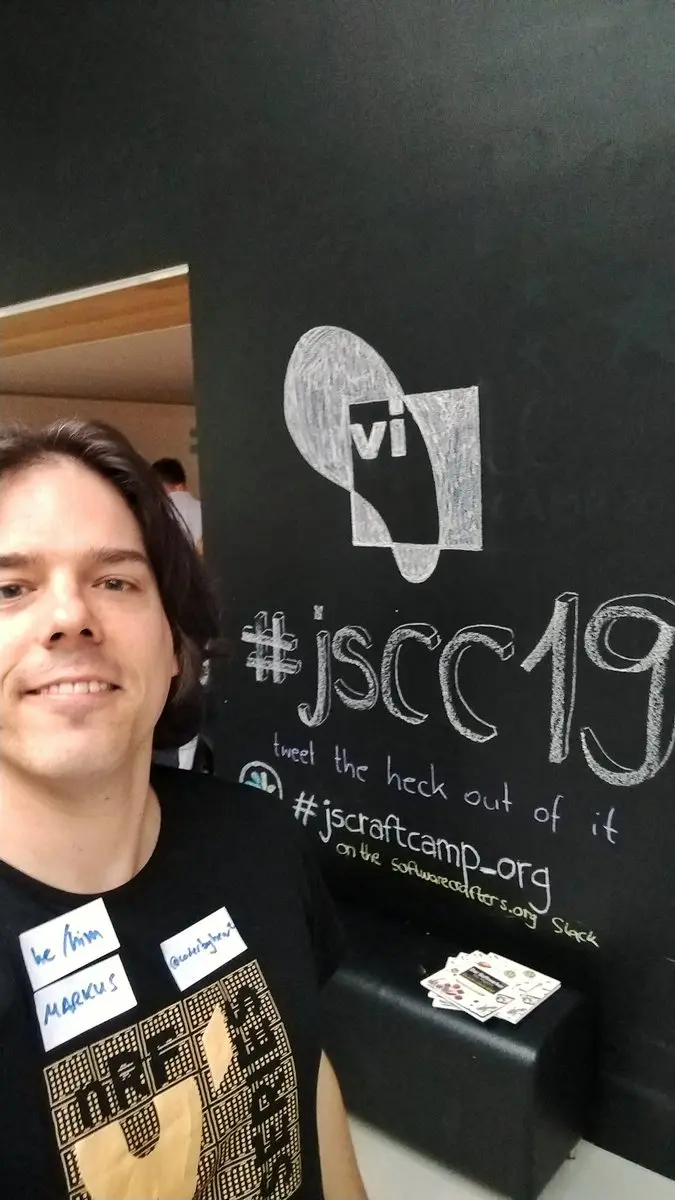 vi
#jscc19
tweet the heck out of it
#jscraftcamp_org
on the softwarecrafters.org Slack
he/him
MARKUS
nRF
SERIES